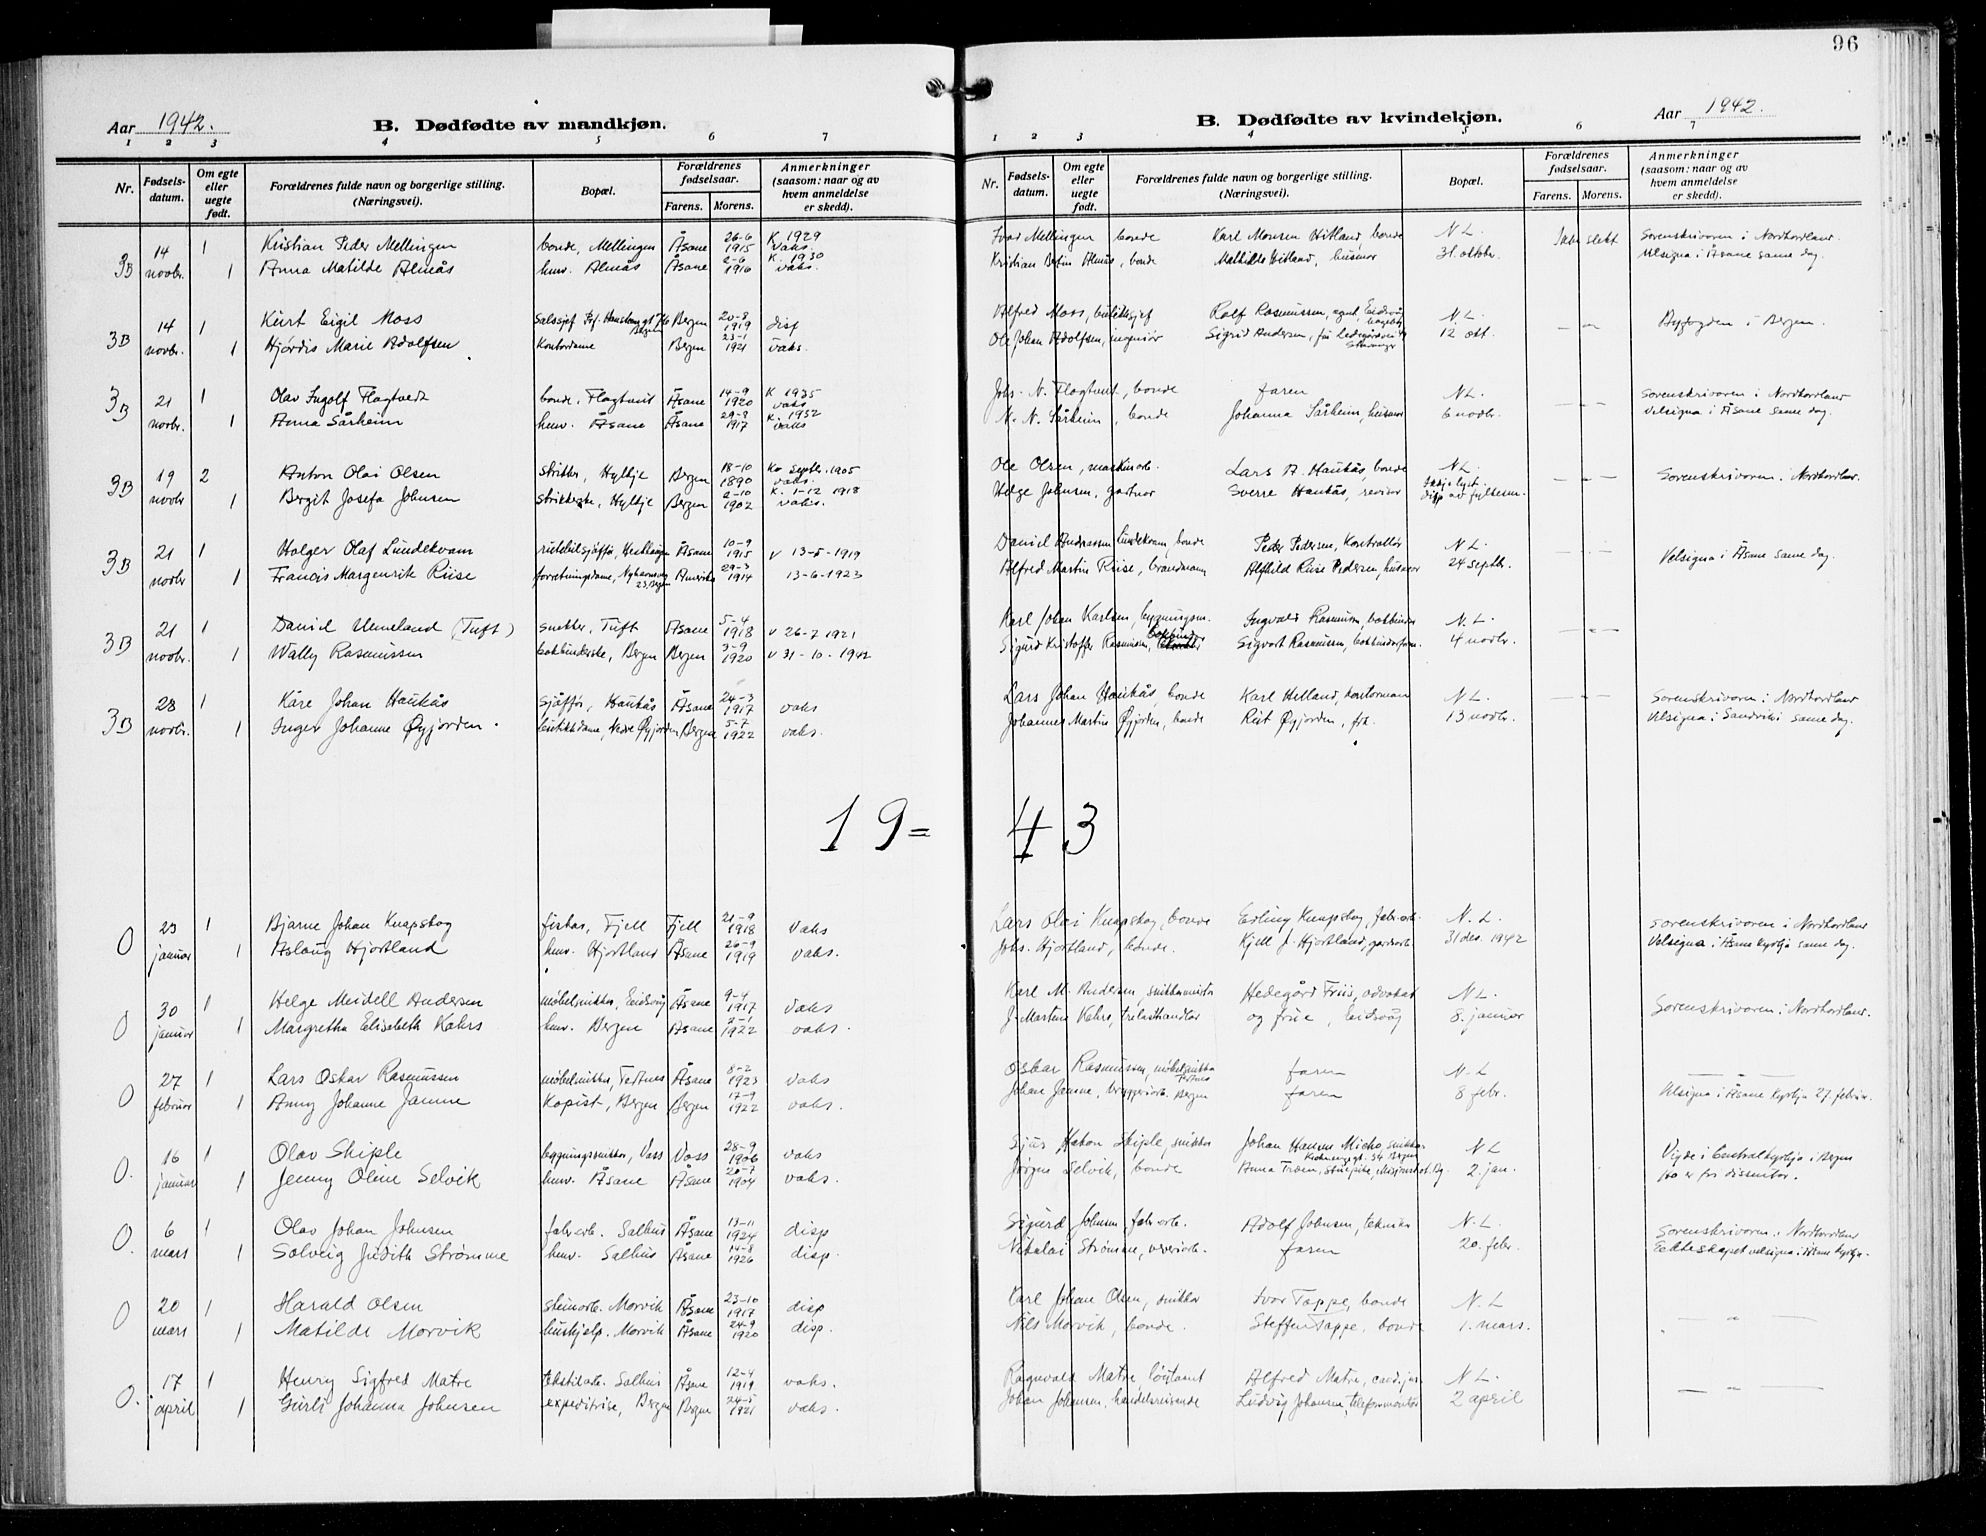 96
Aar 1942.
B. Dødfødte av mandkjøn.
1 2 3 4 5 6 7
Nr.
Fødsels-datum.
Om egte eller uegte født.
Forældrenes fulde navn og borgerlige stilling. (Næringsvei).
Bopæl.
Forældrenes fødselsaar.
Farens. Morens.
Anmerkninger (saasom: naar og av hvem anmeldelse er skedd).
B. Dødfødte av kvindekjøn.
Aar 1942.
1 2 3 4 5 6 7
Nr.
Fødsels-datum.
Om egte eller uegte født.
Forældrenes fulde navn og borgerlige stilling. (Næringsvei).
Bopæl.
Forældrenes fødselsaar.
Farens. Morens.
Anmerkninger (saasom: naar og av hvem anmeldelse er skedd).
3B 14 1 Kristian Peder Mellingen bonde, Mellingen Åsane 26-6 1915 K. 1929 vaks. Ivar Mellingen bonde Karl Monsen Hitland, bonde N L. Sorenskrivaren i Nordhordland.
novbr. 1 Anna Matilde Almås heimv. Almås Åsane 2-6 1916 K. 1930 vaks. Kristian Almås, bonde Mathilde Hitland, husmor 31. oktobr. Velsigna i Åsane same dag.
3B 14 1 Kurt Eigil Moss Bergen 20-8 1919 disp Alfred Moss, Rolf Rasmussen, agent, N L. Byfogden i Bergen.
novbr. 1 Hjørdis Marie Adolfsen Kontordame Bergen 23-1 1921 vaks. Ole Johan Adolfsen, ingeniør Sigrid Andersen, 12 okt.
3B 21 1 Olav Ingolf Flagtvedt bonde, Flagtveit Åsane 14-9 1920 K 1935 vaks Johs. N. Flagtveit, bonde faren N L. Sorenskrivaren i Nordhordland
novbr. 1 Anna Sårheim heimv. Åsane Åsane 29-9 1917 K. 1932 vaks M. N. Sårheim, bonde Johanna Sårheim, husmor 6 novbr. Velsigna i Åsane same dag.
3B 19 2 Anton Olai Olsen strikker, Hylkje Bergen 18-10 1890 septbr. 1905 vaks. Ole Olsen, maskinarb. Lars A. Haukås, bonde N L. Sorenskrivaren i Nordhordland.
novbr. 1 Bergit Josefa Johnsen Hylkje Bergen 2-10 1902 K. 1-12 1918 vaks. Helge Johnsen, gartnar Sverre Haukås, revisor
3B 21 1 Holger Olaf Lundekvam Åsane 10-9 1915 v 13-5-1919 Daniel Andreassen Lundekvam, bonde Peder Pedersen, Kontrollør N L. Velsigna i Åsane same dag.
novbr. 1 Francis Margenrik Riise Amerika 29-3 1914 13-6-1923 Alfred Martin Riise, brandmann Alfhild Riise Pedersen, husmor 24 septbr.
3B 21 1 Daniel Unneland (Tuft) snekker, Tuft Åsane 5-4 1918 v 26-7 1921 Karl Johan Karlsen, bygningssn. Ingvald Rasmussen, bokbinder N. L.
novbr. 1 Wally Rasmussen Bergen Bergen 3-9 1920 v 31-10-1942 Sigurd Kristoffer Rasmussen, bokbinder Sigvart Rasmussen, 4 novbr.
3B 28 1 Kåre Johan Haukås sjåfør, Haukås Åsane 24-3 1917 vaks Lars Johan Haukås bonde Karl Helland, kontormann N L. Sorenskrivaren i Nordhordland
novbr. 1 Inger Johanne Øyjorden. butikkdame, Nedre Øyjorden Bergen 5-7 1922 vaks. Johannes Martin Øyjorden, bonde Rut Øyjorden, frk. 13 novbr. Velsigna i Sandviki same dag.
19= 43
0 23 1 Bjarne Johan Knapskog fiskar, Fjell Fjell 21-9 1918 vaks Lars Olai Knapskog, bonde Erling Knapskog, fabr.arb. N. L. Sorenskrivaren i Nordhordland
januar 1 Aslaug Hjortland heimv. Hjortland Åsane 26-9 1919 vaks. Johs. Hjortland, bonde. Kjell J. Hjortland, gardsarb. 31 des. 1942 Velsigna i Åsane kyrkja same dag.
0 30 1 Helge Meidell Andersen møbelsnikkar, Eidsvåg Åsane 9-4 1917 vaks Karl M. Andersen, snikkarmeister Hedegård Friis, advokat N L. Sorenskrivaren i Nordhordland.
januar 1 Margretha Elisabeth Kahrs heimv. Bergen Åsane 2-1 1922 vaks. J. Martens Kahrs, trelasthandlar og frue, Eidsvåg 8. januar
0 27 1 Lars Oskar Rasmussen møbelsnikkar, Tertnes Åsane 8-2 1923 vaks Oskar Rasmussen, møbelsnikkar Tertnes faren N-L
februar 1 Anny Johanne Janne Kopist, Bergen Bergen 17-9 1922 vaks. Johan Janne, bryggeriarb. Bergen faren 8 febr. Velsigna i Åsane kyrkja 27. februar.
0. 16 1 Olav Skiple bygningssnikkar, Voss Voss 28-9 1906 vaks Sjur Håkon Skiple, snikkar Johan Hanne snikkar N L Vigde i Centralkyrkja i Bergen
januar 1 Jenny Oline Selvik heimv. Åsane Åsane 20-7 1904 vaks. Jørgen Selvik, bonde Anna 2. jan. Ho er frå dissentar.
0. 6 1 Olav Johan Johnsen fabr.arb. Salhus Åsane 13-11 1924 disp Sigurd Johnsen, fabr.arb. Adolf Johnsen, teknikar N-L. Sorenskrivaren i Nordhordland
mars 1 Solveig Judith Strømme heimv. Salhus Åsane 14-8 1926 disp. Nikolai Strømme, veveriarb. faren 20. febr. Ekteskapet velsigna i Åsane kyrkja.
0 20 1 Harald Olsen steinarb. Morvik Åsane 23-10 1917 disp Karl Johan Olsen, snikkar Ivar Tappe, bonde N. L
mars 1 Matilde Morvik hushjelp. Morvik Åsane 24-9 1920 disp. Nils Morvik, bonde. Steffen Tappe, bonde 1. mars.
0. 17 1 Henry Sigfred Matre tekstilarb. Salhus Åsane 12-4 1919 vaks. Ragnvald Matre, løytnant Alfred Matre, cand.jur. N L.
april 1 Gürli Johanna Johnsen expeditrise, Bergen Bergen 24-5 1921 vaks. Johan Johansen, handelsreisende Ludvig Johansen, telefonmontør 2 april